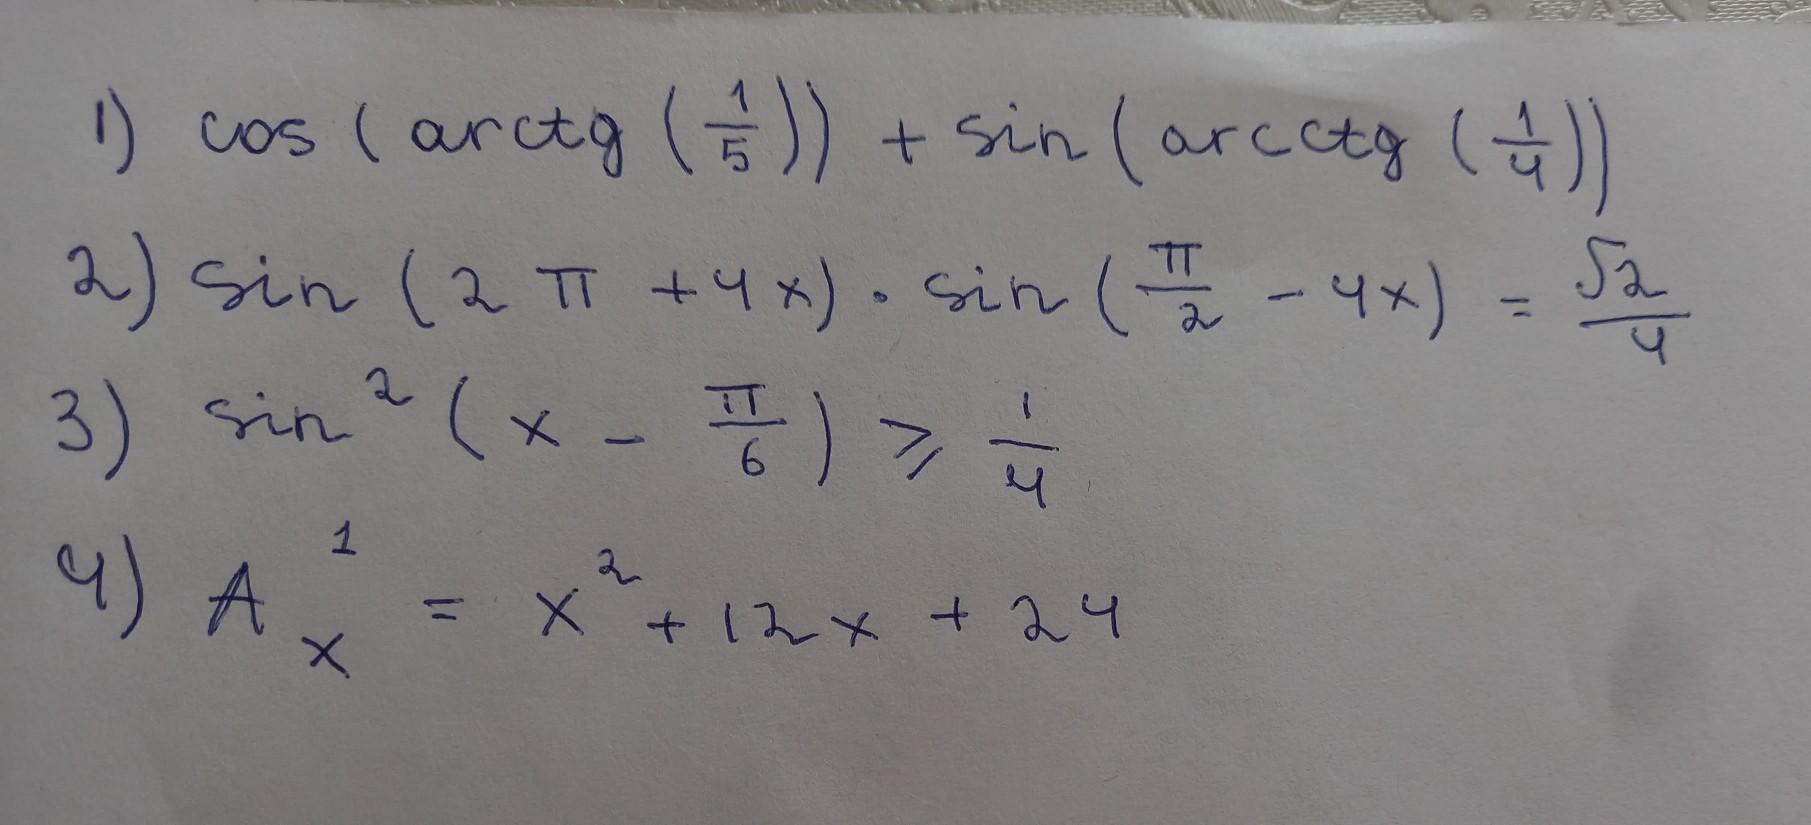 1) cos (arctg (1/5)) + sin (arcctg (1/4))
2) sin (2π + 4x) · sin (π/2 - 4x) = √2/4
3) sin² (x - π/6) ⩾ 1/4
4) A¹ₓ = x² + 12x + 24